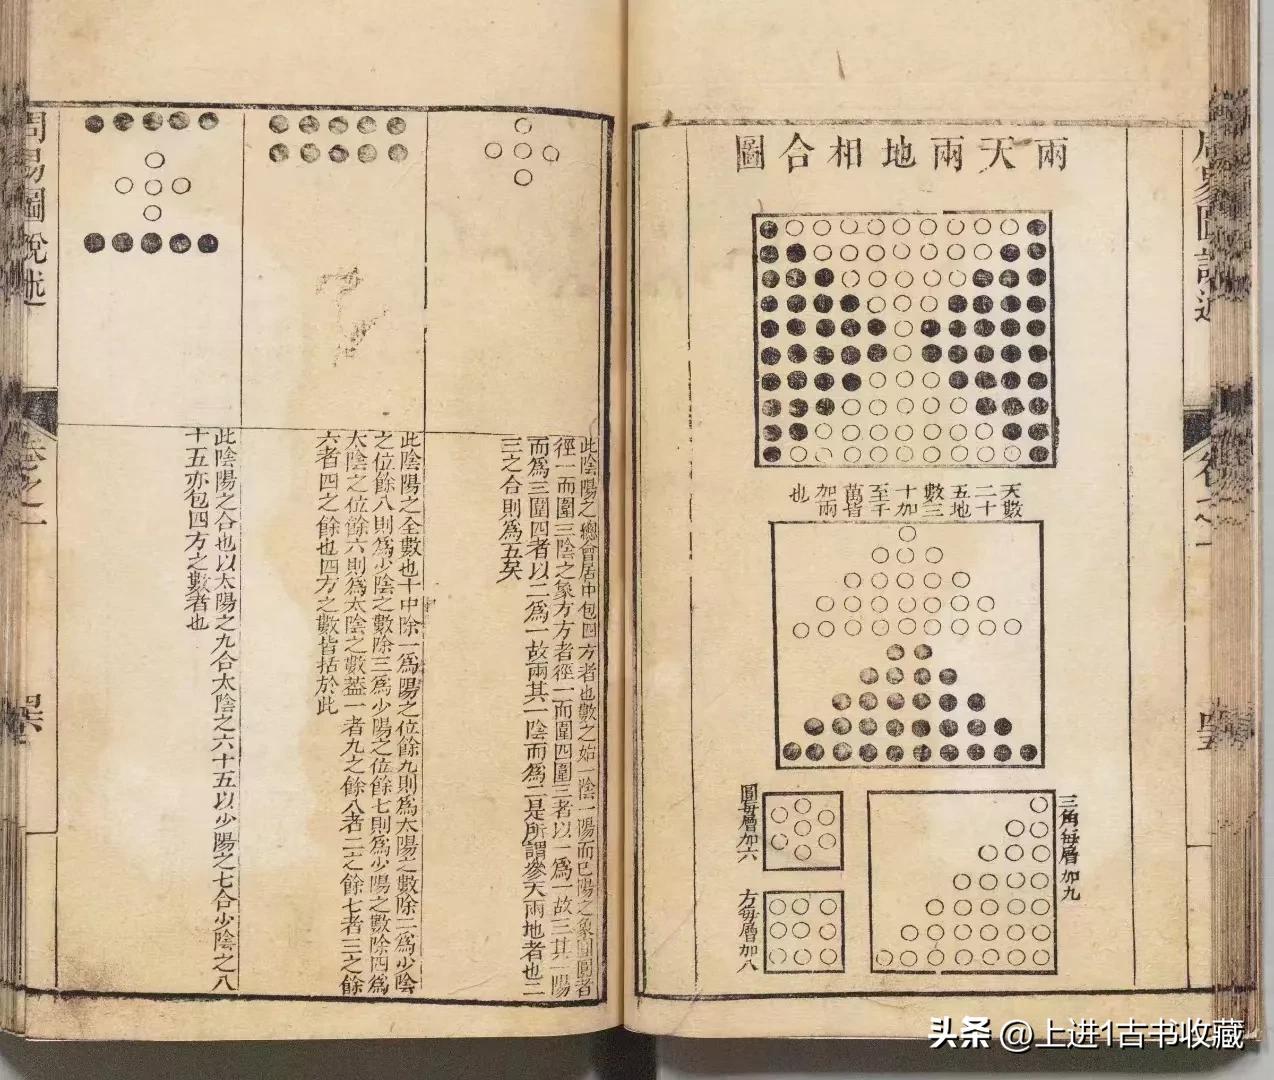 周易圖說述
卷之一
兩天兩地相合圖
天數
二十
五地
數三
十加
至千
萬皆
加兩
也
三角每層加九
圓每層加六
方每層加八
此陰陽之總會居中包四方者也數之始一陰一陽而已陽之象圓圓者
徑一而圍三陰之象方方者徑一而圍四圍三者以一爲一故三其一陽
而爲三圍四者以二爲一故兩其一陰而爲二是所謂參天兩地者也二
三之合則爲五矣
此陰陽之全數也十中除一爲陽之位餘九則爲太陽之數除二爲少陰
之位餘八則爲少陰之數除三爲少陽之位餘七則爲少陽之數除四爲
太陰之位餘六則爲太陰之數蓋一者九之餘八者二之餘七者三之餘
六者四之餘也四方之數皆括於此
此陰陽之合也以太陽之九合太陰之六十五以少陽之七合少陰之八
十五亦包四方之數者也
周易圖說述
卷之一
头条 @上进1古书收藏